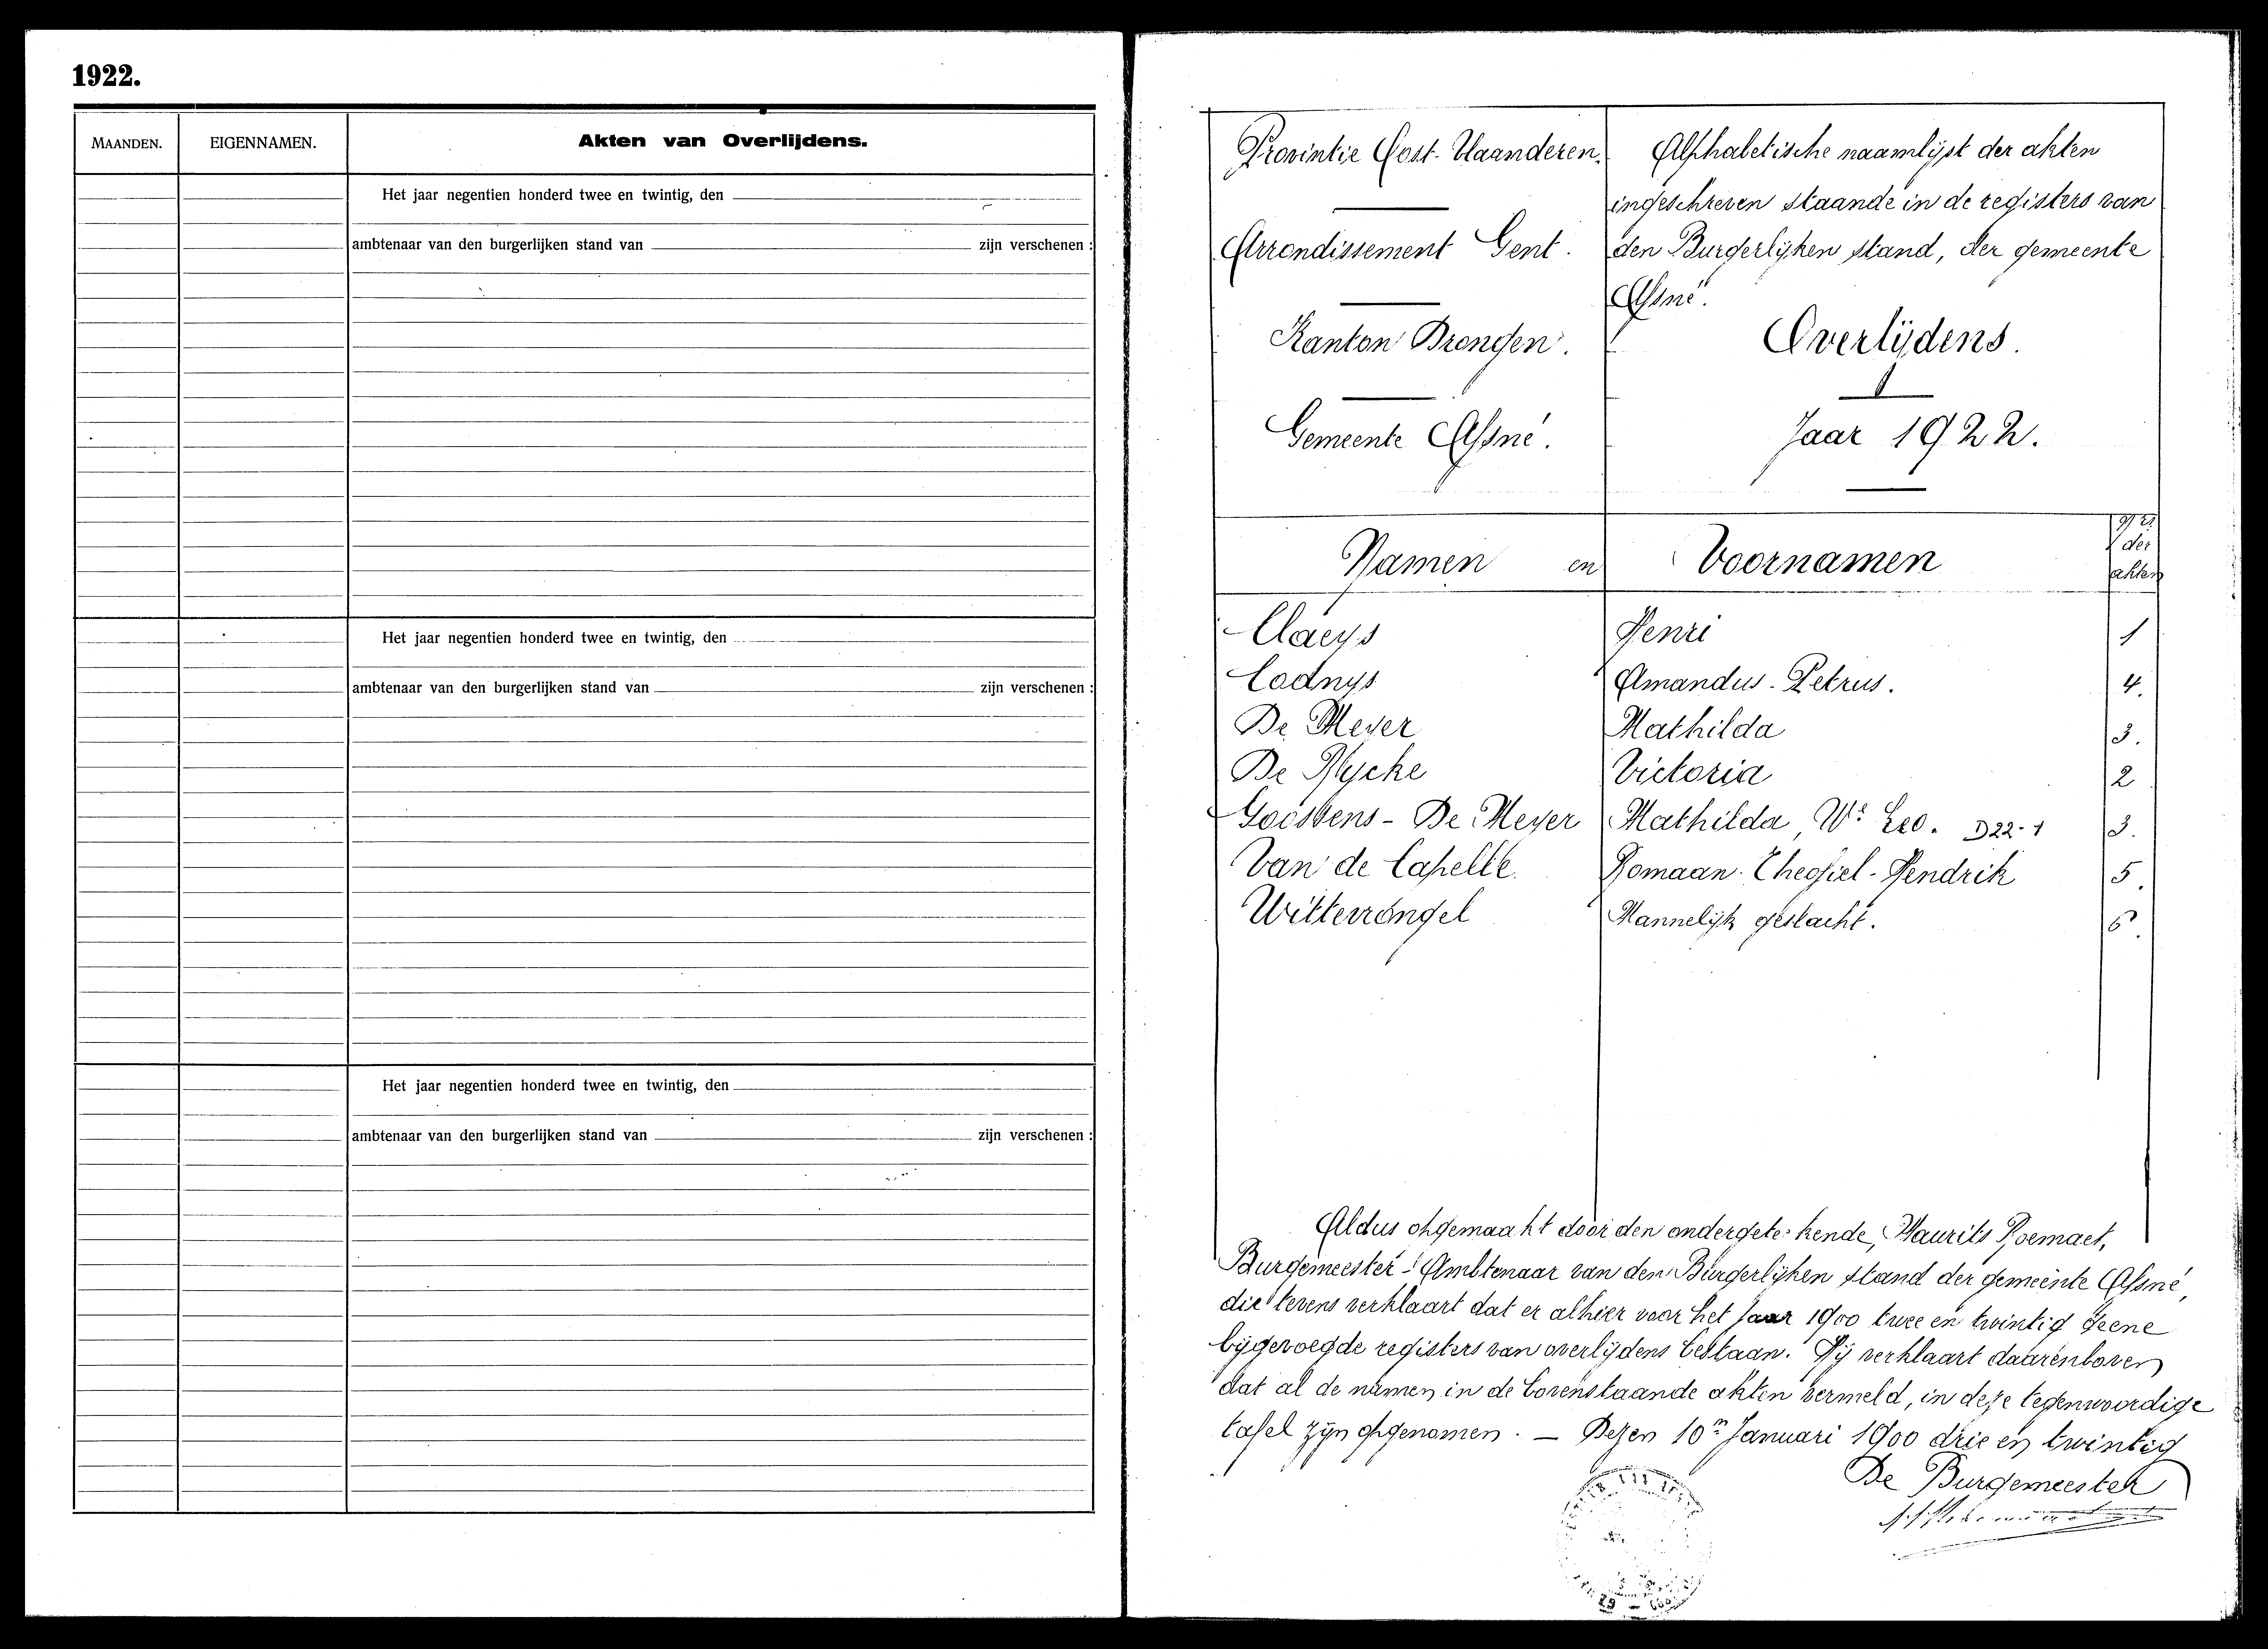 1922.
MAANDEN. EIGENNAMEN. Akten van Overlijdens.
Het jaar negentien honderd twee en twintig, den
ambtenaar van den burgerlijken stand van zijn verschenen :
Het jaar negentien honderd twee en twintig, den
ambtenaar van den burgerlijken stand van zijn verschenen :
Het jaar negentien honderd twee en twintig, den
ambtenaar van den burgerlijken stand van zijn verschenen :
Provintie Oost-Vlaanderen.
Arrondissement Gent.
Kanton Brongen.
Gemeente Afsné.
Alphabetische naamlijst der akten
ingeschreven staande in de registers van
den Burgerlijken stand, der gemeente
Afsné.
Overlijdens.
Jaar 1922.
Namen en Voornamen der akten
Claeys Henri 1
Codnys Amandus-Petrus. 4.
De Meyer Mathilda 3.
De Rycke Victoria 2
Goossens - De Meyer Mathilda, We Leo. D22-1 3.
Van de Capelle Romaan-Theofiel-Hendrik 5.
Witterrongel Mannelijk geslacht. 6.
Aldus opgemaakt door den ondergeteekende, Maurits
Burgemeester-Ambtenaar van den Burgerlijken stand der gemeente Afsné,
die tevens verklaart dat er alhier voor het Jaar 1900 twee en twintig geene
bijgevoegde registers van overlijdens bestaan. Hij verklaart daarenboven
dat al de namen in de bovenstaande akten vermeld, in deze tegenwoordige
tafel zijn opgenomen. — Dezen 10n Januari 1900 drie en twintig
De Burgemeester